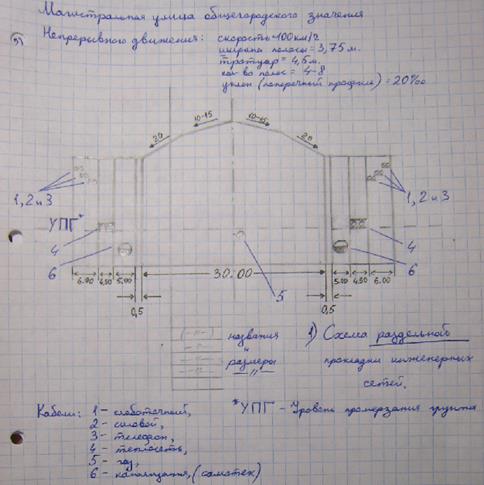 Магистральная улица общегородского значения
Непрерывного движения: скорость=100км/г
ширина полосы=3,75м.
тротуар=4,5м.
кол-во полос=4-8
уклон (поперечный профиль)=20‰
20 10-15 10-15 20
1,2 и 3 1,2 и 3
УПГ*
4 4
6 6
6.00 4,50 5,00 30.00 5.00 4,50 6.00
0,5 5 0,5
названия
размеры
1) Схема раздельной
прокладки инженерных
сетей.
*УПГ - Уровень промерзания грунта
Кабели: 1 - слаботочный,
2 - силовой,
3 - телефон,
4 - теплосеть,
5 - газ,
6 - канализация, (самотек)